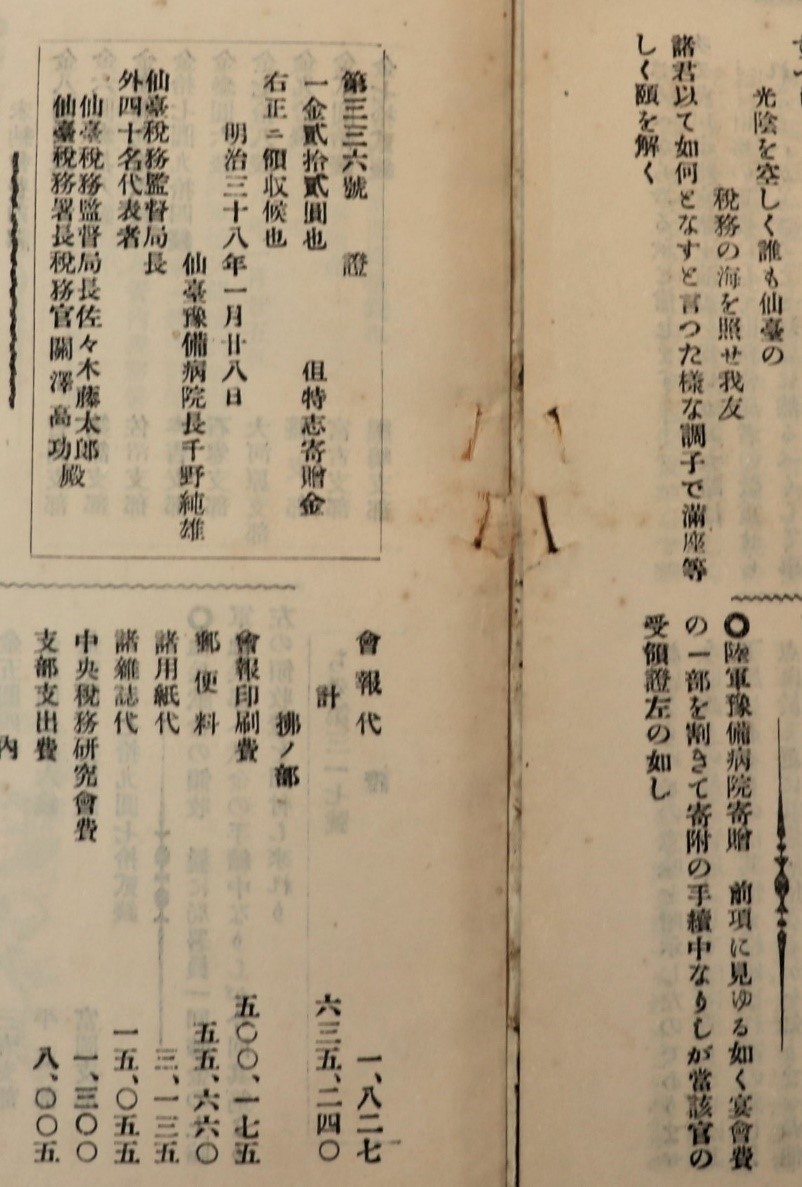 光陰を空しく誰も仙臺の
稅務の海を照せ我友
諸君以て如何となすと言つた様な調子で滿座等
しく頤を解く
◎陸軍豫備病院寄贈　前項に見ゆる如く宴會費
の一部を割きて寄附の手續中なりしが當該官の
受領證左の如し
第三三六號　證
一金貳拾貳圓也　但特志寄贈金
右正ニ領収候也
明治三十八年一月廿八日
仙臺豫備病院長千野純雄
仙臺稅務監督局長
外四十名代表者
仙臺稅務監督局長佐々木藤太郎殿
仙臺稅務署長稅務官關澤高功殿
會報代　一、八二七
計　六三五、二四〇
拂ノ部
會報印刷費　五〇〇、一七五
郵便料　五五、六六〇
諸用紙代　三、一三五
諸雜誌代　一五、〇五五
中央稅務研究會費　一、三〇〇
支部支出費　八、〇〇五
內